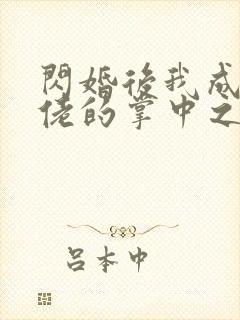 閃婚後我成
佬的掌中之
呂本中